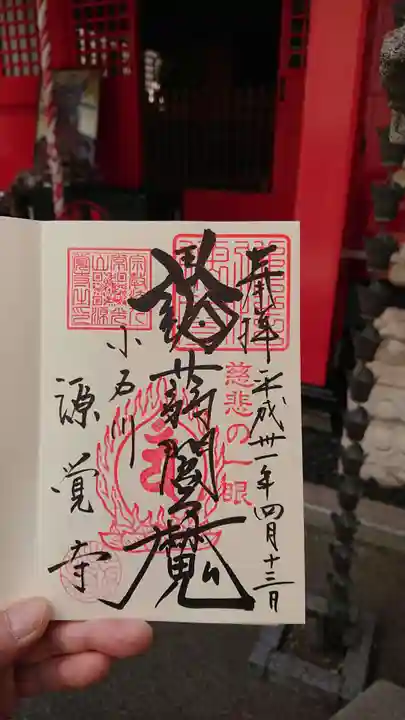 奉拝
平成卅一年四月十三日
慈悲の一眼
蒟蒻閻魔
小石川
源覚寺